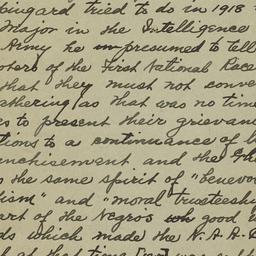 pingard tried to do in 1918
Major in the Intelligence
Army he presumed to tell
oters of the First National Race
that they must not conve
athering, as that was no tim
es to present their grievanc
tions to a continuance of l
nchisement and the
the same spirit of "benevo
ism" and "moral trusteeshi
art of the Negros good w
ds which made the N.A.A.
at that time was